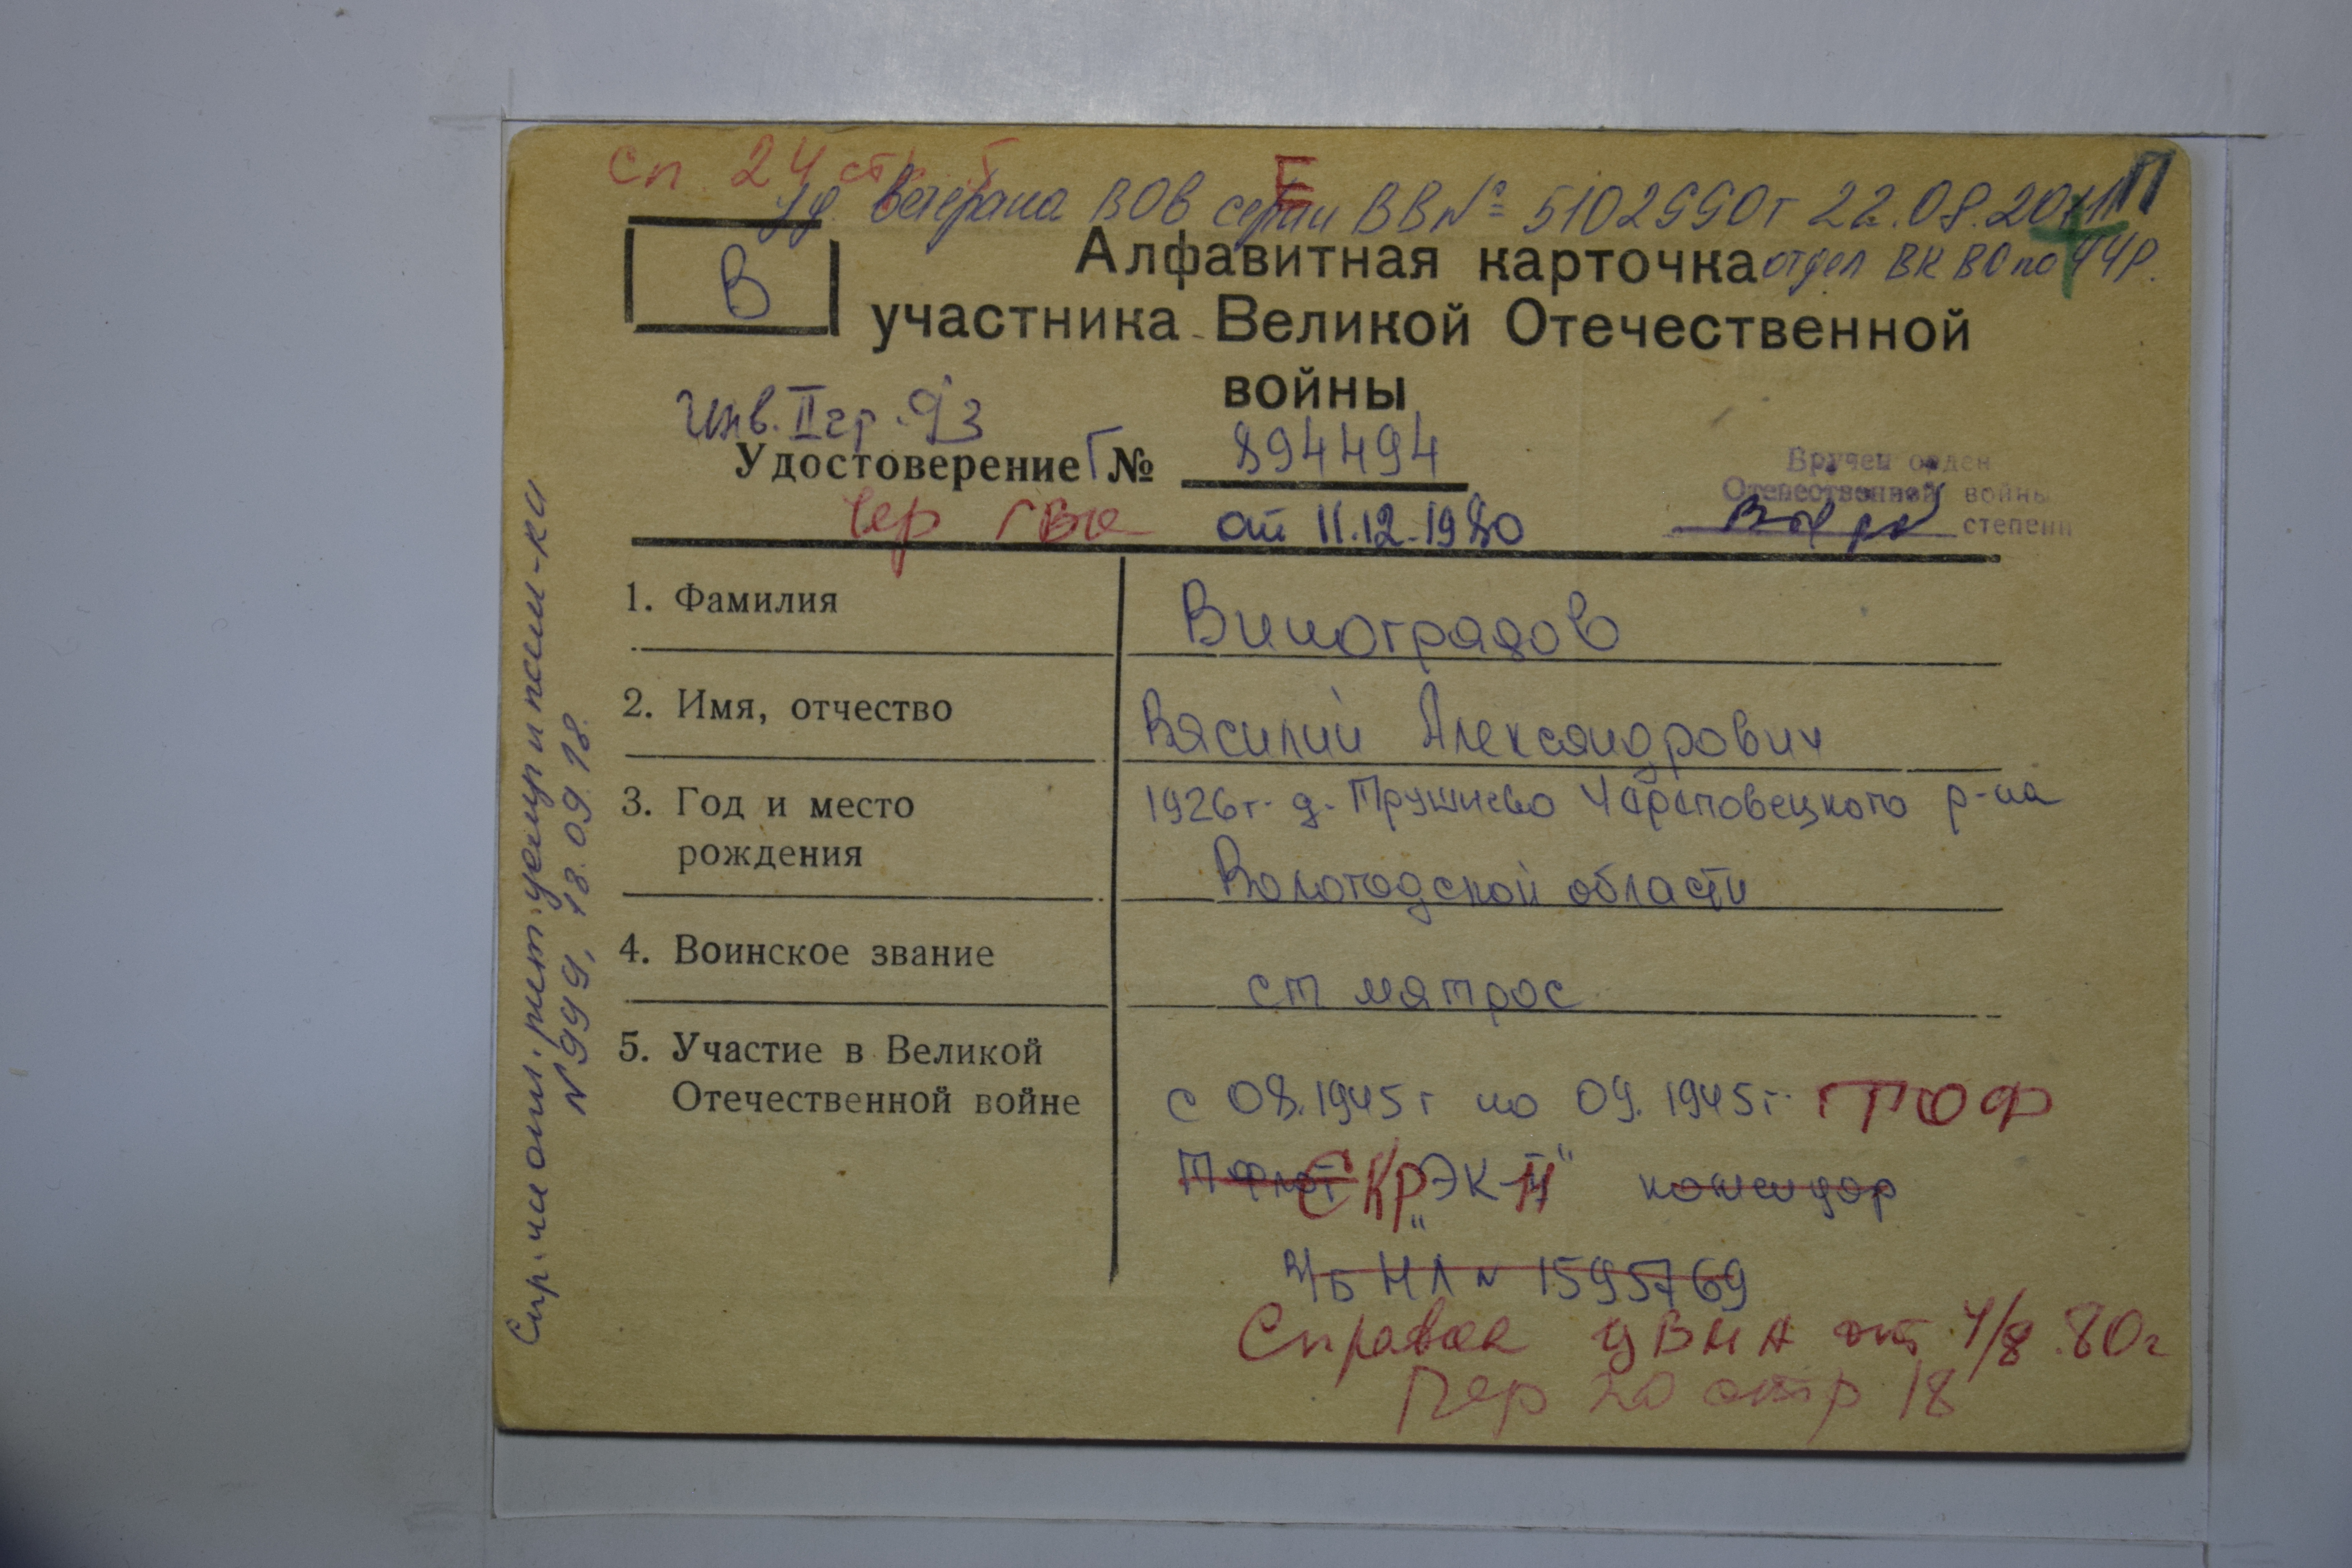 сп 24 ст
Е
уд. ветерана ВОВ серии ВВ № 5102990 от 22.08.2011
П
В
Алфавитная карточка
отдел ВК ВО по
участника Великой Отечественной
войны
Инв. II гр. 93
Удостоверение Г № 894494
Чер ГВК
от 11.12.1980
Вручен орден
Отечественной войны
степени
1. Фамилия
Виноградов
2. Имя, отчество
Василий Александрович
3. Год и место
рождения
1926г. д. Трушнево Череповецкого р-на
Вологодской области
4. Воинское звание
ст матрос
5. Участие в Великой
Отечественной войне
с 08.1945г по 09.1945г. ТОФ
СКР „ЭК-
командор
в/б НЛ № 1595769
Справка ЦВМА от 4/8.80г
Пер 20 стр 18
№ 999, 18.09.18.